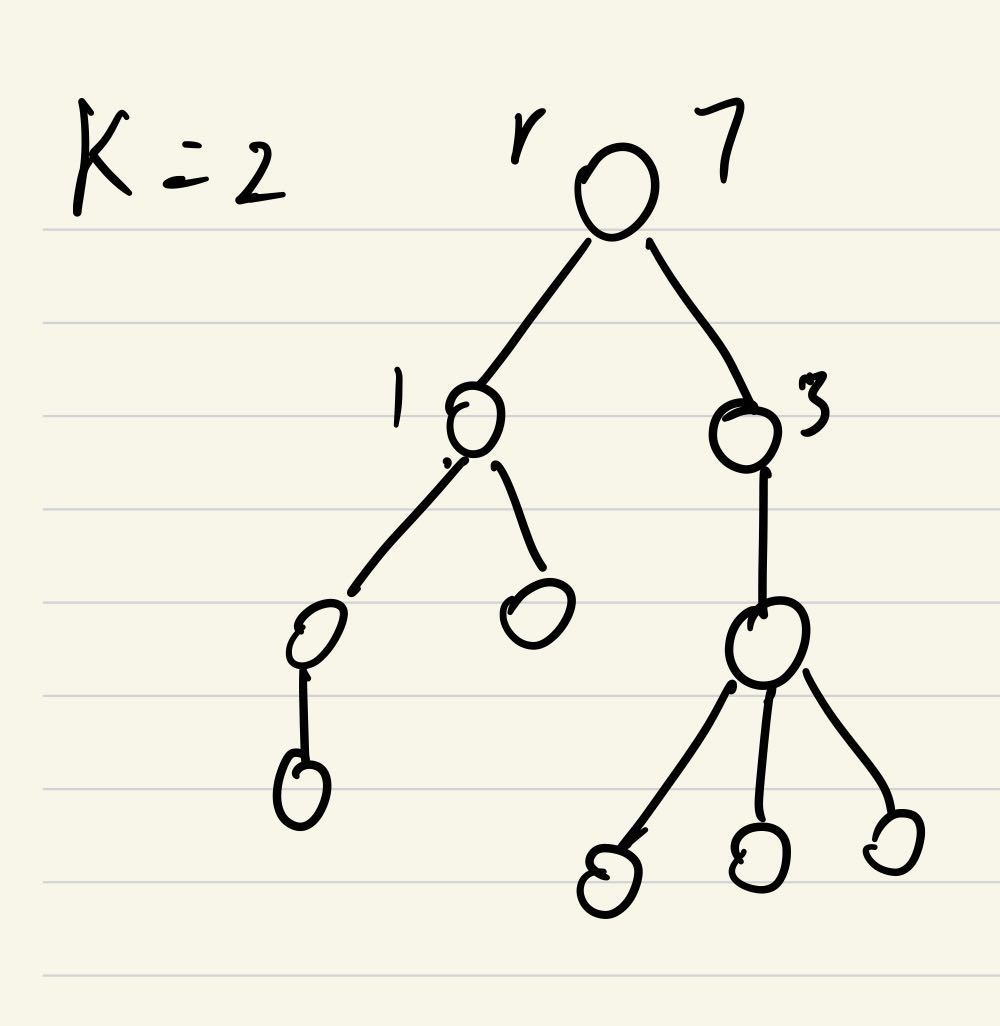 K = 2
r 7
1
3